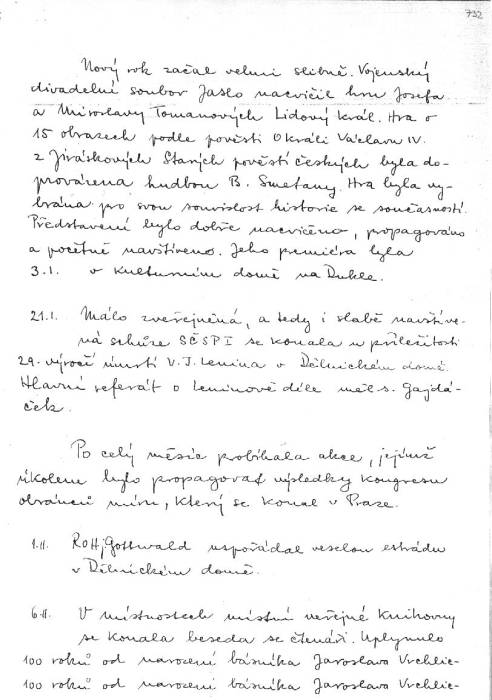 732
Nový rok začal velmi slibně. Vojenský
divadelní soubor Jaslo nacvičil hru Josefa
a Miroslavy Tomanových Lidový král. Hra o
15 obrazech podle pověsti O králi Václavu IV.
z Jiráskových Starých pověstí českých byla do-
provázena hudbou B. Smetany. Hra byla vy-
brána pro svou souvislost historie se současností.
Představení bylo dobře nacvičeno, propagováno
a početně navštíveno. Jeho premiéra byla
3.1. v Kulturním domě na Dukle.
21.1. Málo zveřejněná, a tedy i slabě navštíve-
ná schůze SČSPI se konala u příležitosti
29. výročí úmrtí V. J. Lenina v Dělnickém domě.
Hlavní referát o Leninově díle měl s. Gajdá-
ček.
Po celý měsíc probíhala akce, jejímž
úkolem bylo propagovat výsledky Kongresu
obránců míru, který se konal v Praze.
1.II. ROH Gottwald uspořádal veselou estrádu
v Dělnickém domě.
6.II. V místnostech místní veřejné knihovny
se konala beseda se čtenáři. Uplynulo
100 roků od narození básníka Jaroslava Vrchlic-
100 roků od narození básníka Jaroslava Vrchlic-